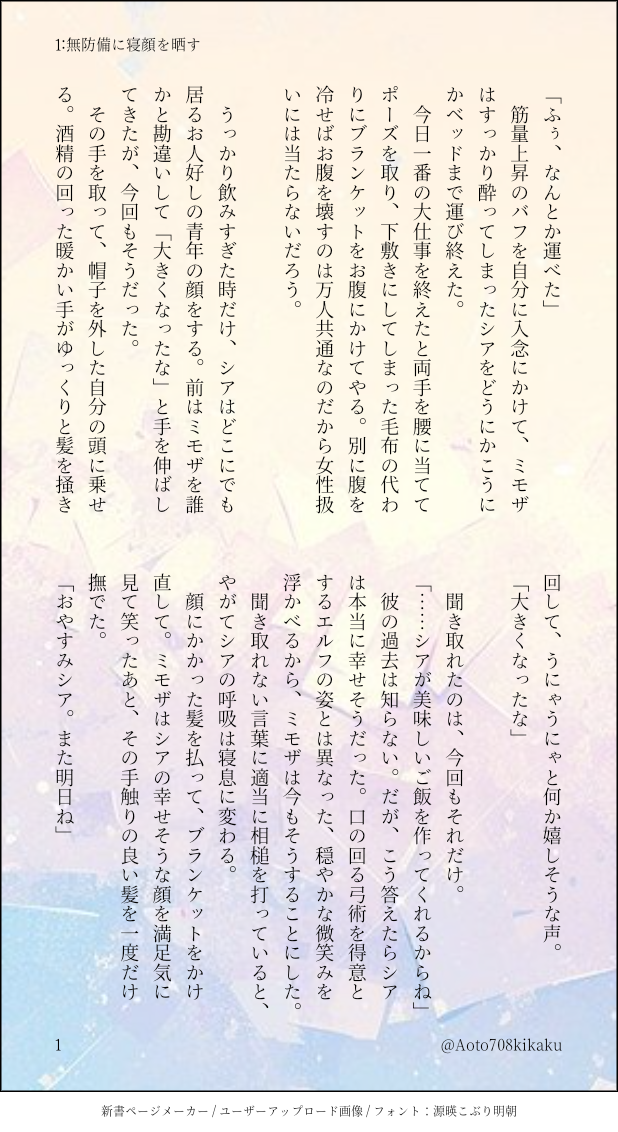 1:無防備に寝顔を晒す
「ふぅ、なんとか運べた」
　筋量上昇のバフを自分に入念にかけて、ミモザ
はすっかり酔ってしまったシアをどうにかこうに
かベッドまで運び終えた。
　今日一番の大仕事を終えたと両手を腰に当てて
ポーズを取り、下敷きにしてしまった毛布の代わ
りにブランケットをお腹にかけてやる。別に腹を
冷せばお腹を壊すのは万人共通なのだから女性扱
いには当たらないだろう。
　うっかり飲みすぎた時だけ、シアはどこにでも
居るお人好しの青年の顔をする。前はミモザを誰
かと勘違いして「大きくなったな」と手を伸ばし
てきたが、今回もそうだった。
　その手を取って、帽子を外した自分の頭に乗せ
る。酒精の回った暖かい手がゆっくりと髪を掻き
回して、うにゃうにゃと何か嬉しそうな声。
「大きくなったな」
　聞き取れたのは、今回もそれだけ。
「……シアが美味しいご飯を作ってくれるからね」
　彼の過去は知らない。だが、こう答えたらシア
は本当に幸せそうだった。口の回る弓術を得意と
するエルフの姿とは異なった、穏やかな微笑みを
浮かべるから、ミモザは今もそうすることにした。
　聞き取れない言葉に適当に相槌を打っていると、
やがてシアの呼吸は寝息に変わる。
　顔にかかった髪を払って、ブランケットをかけ
直して。ミモザはシアの幸せそうな顔を満足気に
見て笑ったあと、その手触りの良い髪を一度だけ
撫でた。
「おやすみシア。また明日ね」
1
@Aoto708kikaku
新書ページメーカー / ユーザーアップロード画像 / フォント：源暎こぶり明朝